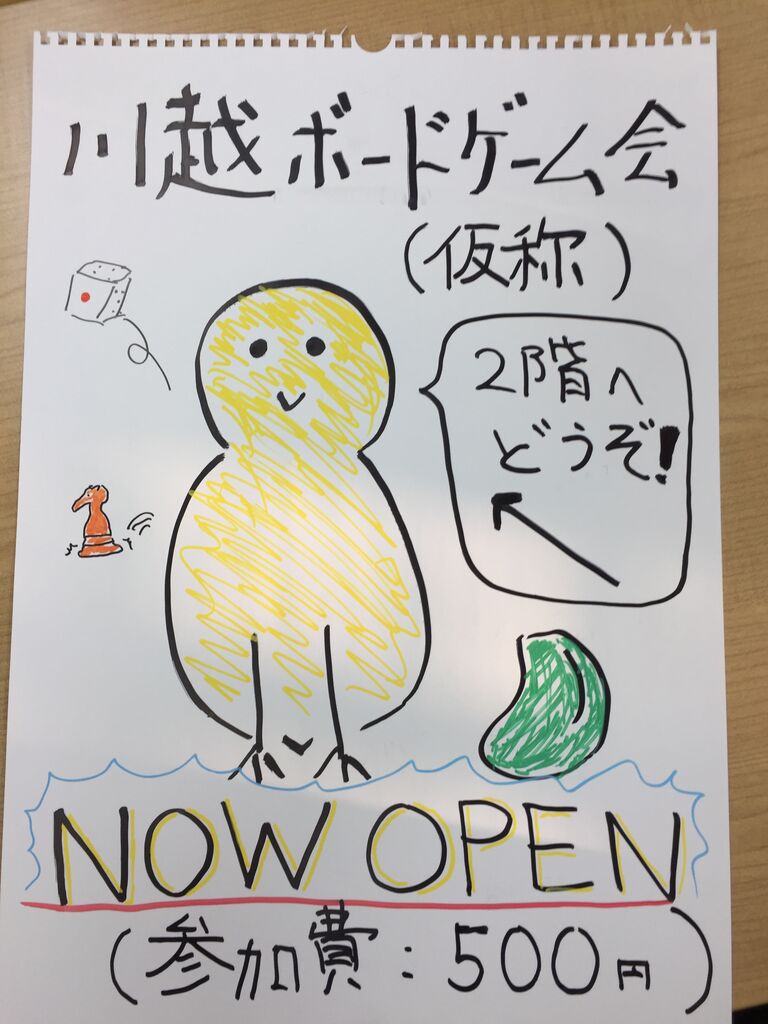 川越ボードゲーム会
(仮称)
2階へ
どうぞ!
NOW OPEN
(参加費:500円)